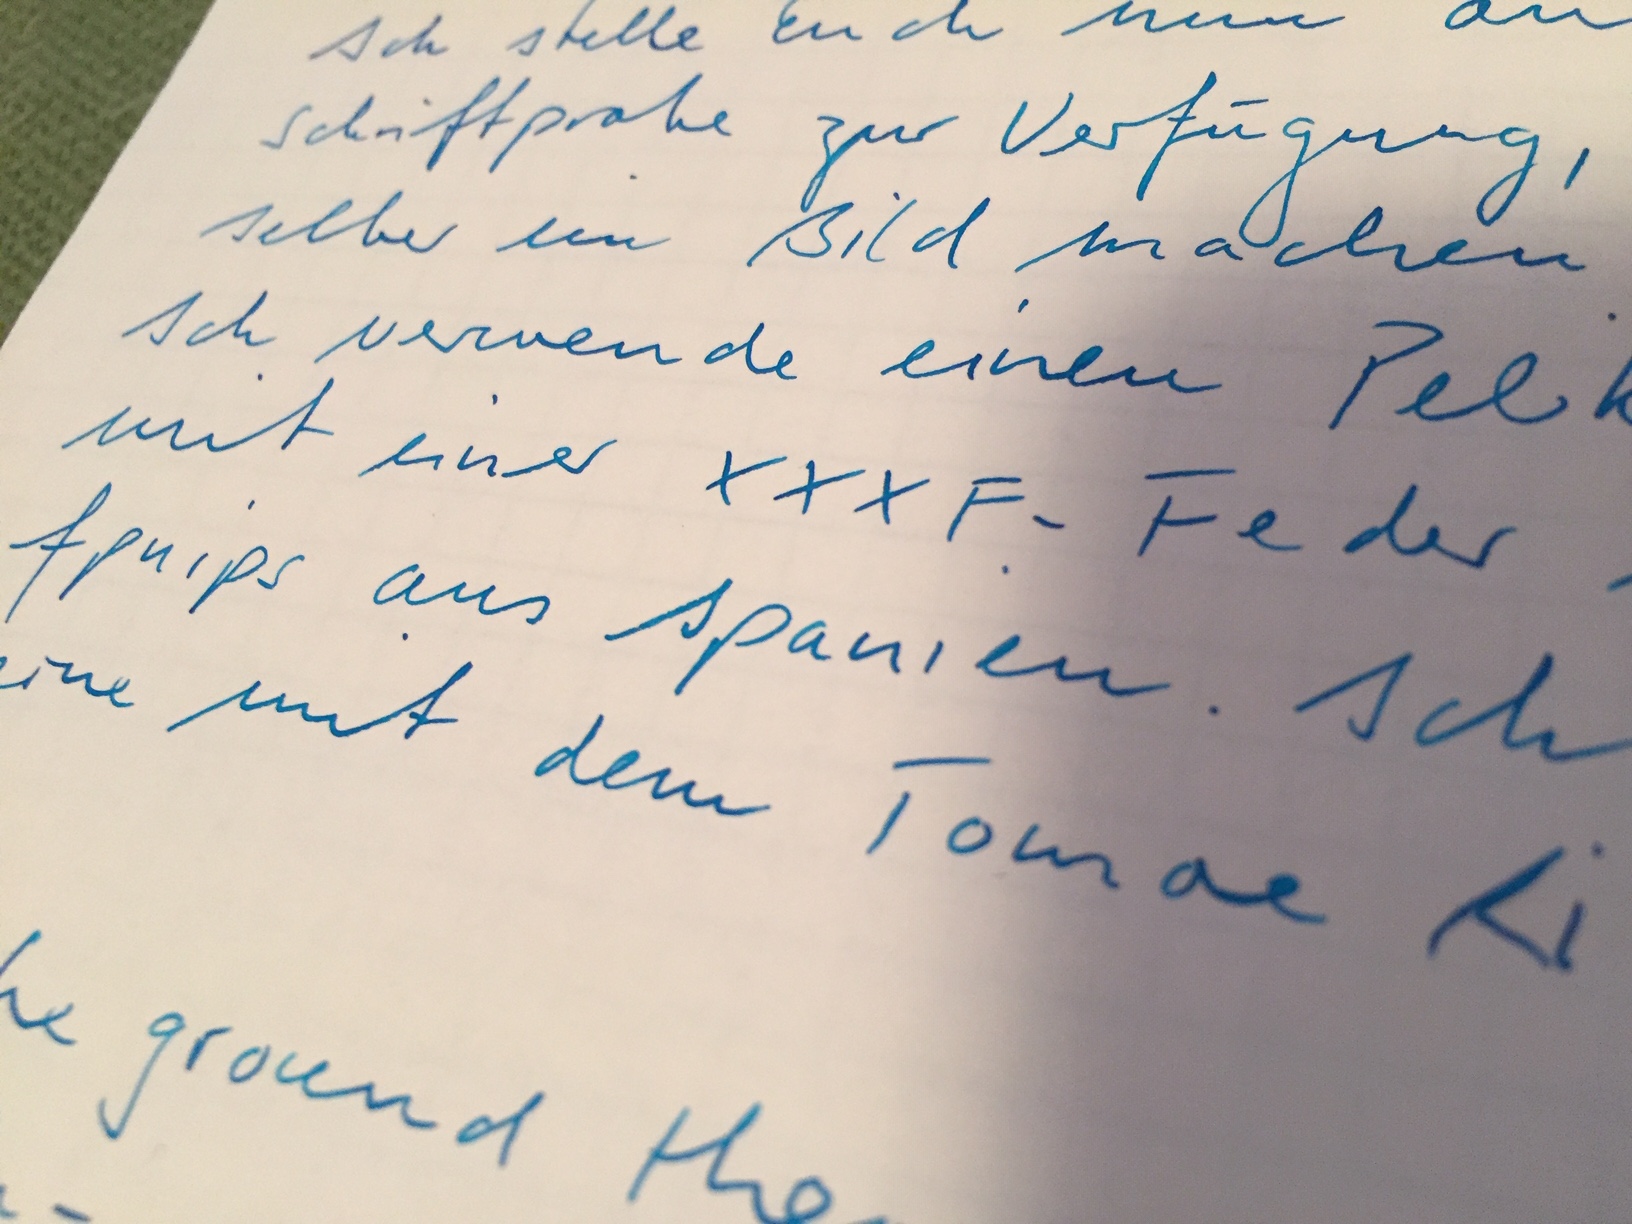 Ich stelle Euch nun an
Schriftprobe zur Verfügung,
selber ein Bild machen
Ich verwende einen Pelik
mit einer XXXF-Feder
fpnips aus Spanien. Ich
eine mit dem Tomoe Ri
he ground the